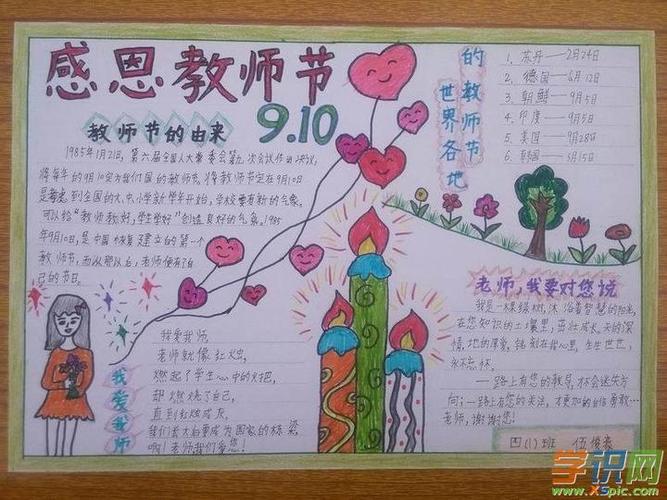 感恩教师节
9.10
教师节的由来
1985年1月21日，第六届全国人大常委会第九次会议作出决议，
将每年的9月10定为我们国的教师节。将教师节定在9月10日
是考虑到全国的大、中、小学新学年开始，学校要有新的气象。
可以给“教师教好，学生学好”创造良好的气象。1985
年9月10日，是中国恢复建立的第一个
教师节，而从那以后，老师便有了自
己的节日。
世界各地
的教师节
1、苏丹——2月24日
2、德国——6月12日
3、朝鲜——9月5日
4、印度——9月5日
5、美国——9月28日
6、韩国——5月15日
我爱教师
我爱我师
老师就像红烛，
燃起了学生心中的火把，
却燃烧了自己，
直到红烛成灰。
我们长大后要成为国家的栋梁
啊！老师我们爱您！
老师，我要对您说
我是一棵绿树，沐浴着智慧的阳光，
在您知识的土壤里，茁壮成长。天的深
情，地的厚爱，铭刻在我心里，生生世世，
永不忘怀。
——路上有您的教导，不会迷失方
向；一路上有您的关注，才更加的自信勇敢…
老师，谢谢您！
四（1）班 伍
学识网
www.XSpic.com